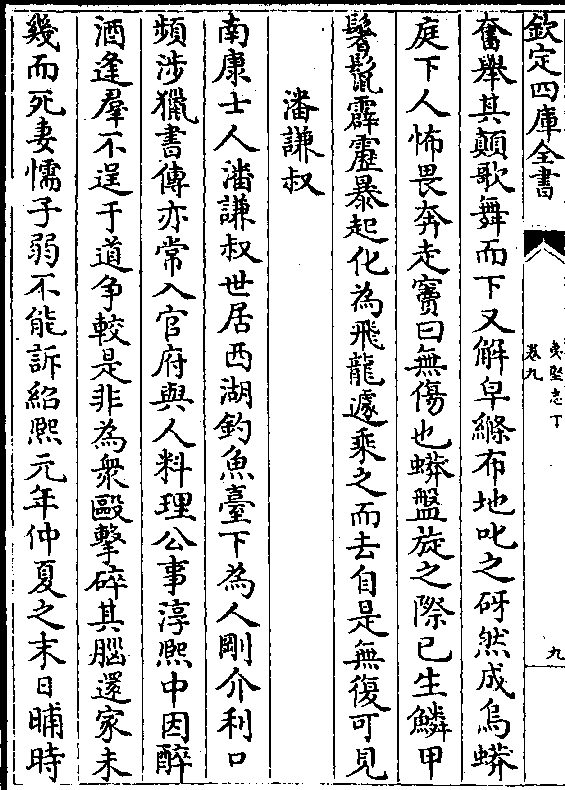 欽定四庫全書
夷堅志丁
卷九
九
奮舉其顛歌舞而下又解皁縧布地叱之砑然成烏蟒
庭下人怖畏奔走竇曰無傷也蟒盤旋之際已生鱗甲
鬐鬛霹靂暴起化為飛龍遽乘之而去自是無復可見
潘謙叔
南康士人潘謙叔世居西湖釣魚臺下為人剛介利口
頻涉獵書傳亦常入官府與人料理公事淳熙中因醉
酒逢羣不逞于道争較是非為衆毆擊碎其腦還家未
幾而死妻懦子弱不能訴紹熙元年仲夏之末日晡時